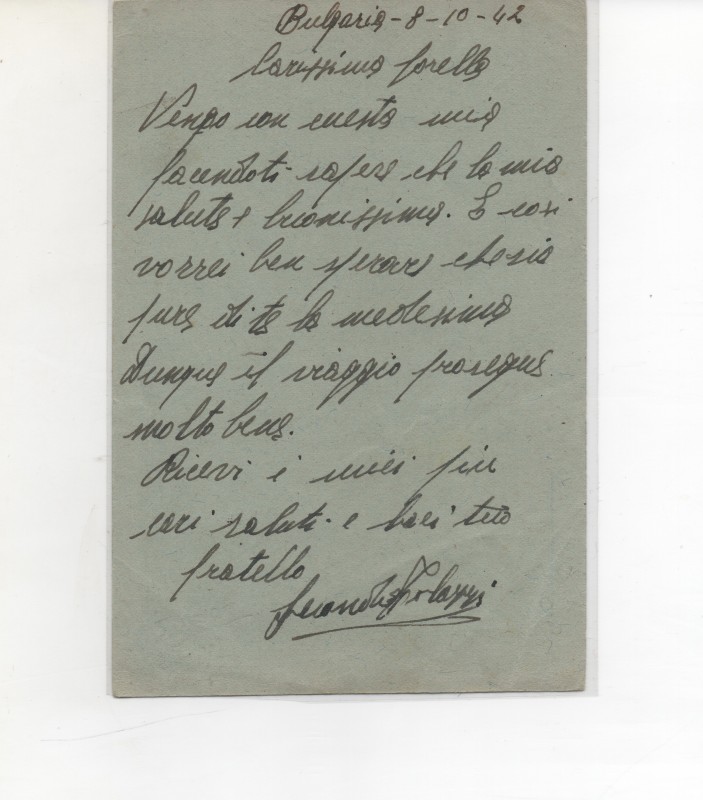 Bulgaria-8-10-42
Carissima sorella
Vengo con questa mia
facendoti sapere che la mia
salute e buonissima. E così
vorrei ben sperare che sia
pure di te la medesima
Dunque il viaggio prosegue
molto bene.
Ricevi i miei più
cari saluti e baci tuo
fratello